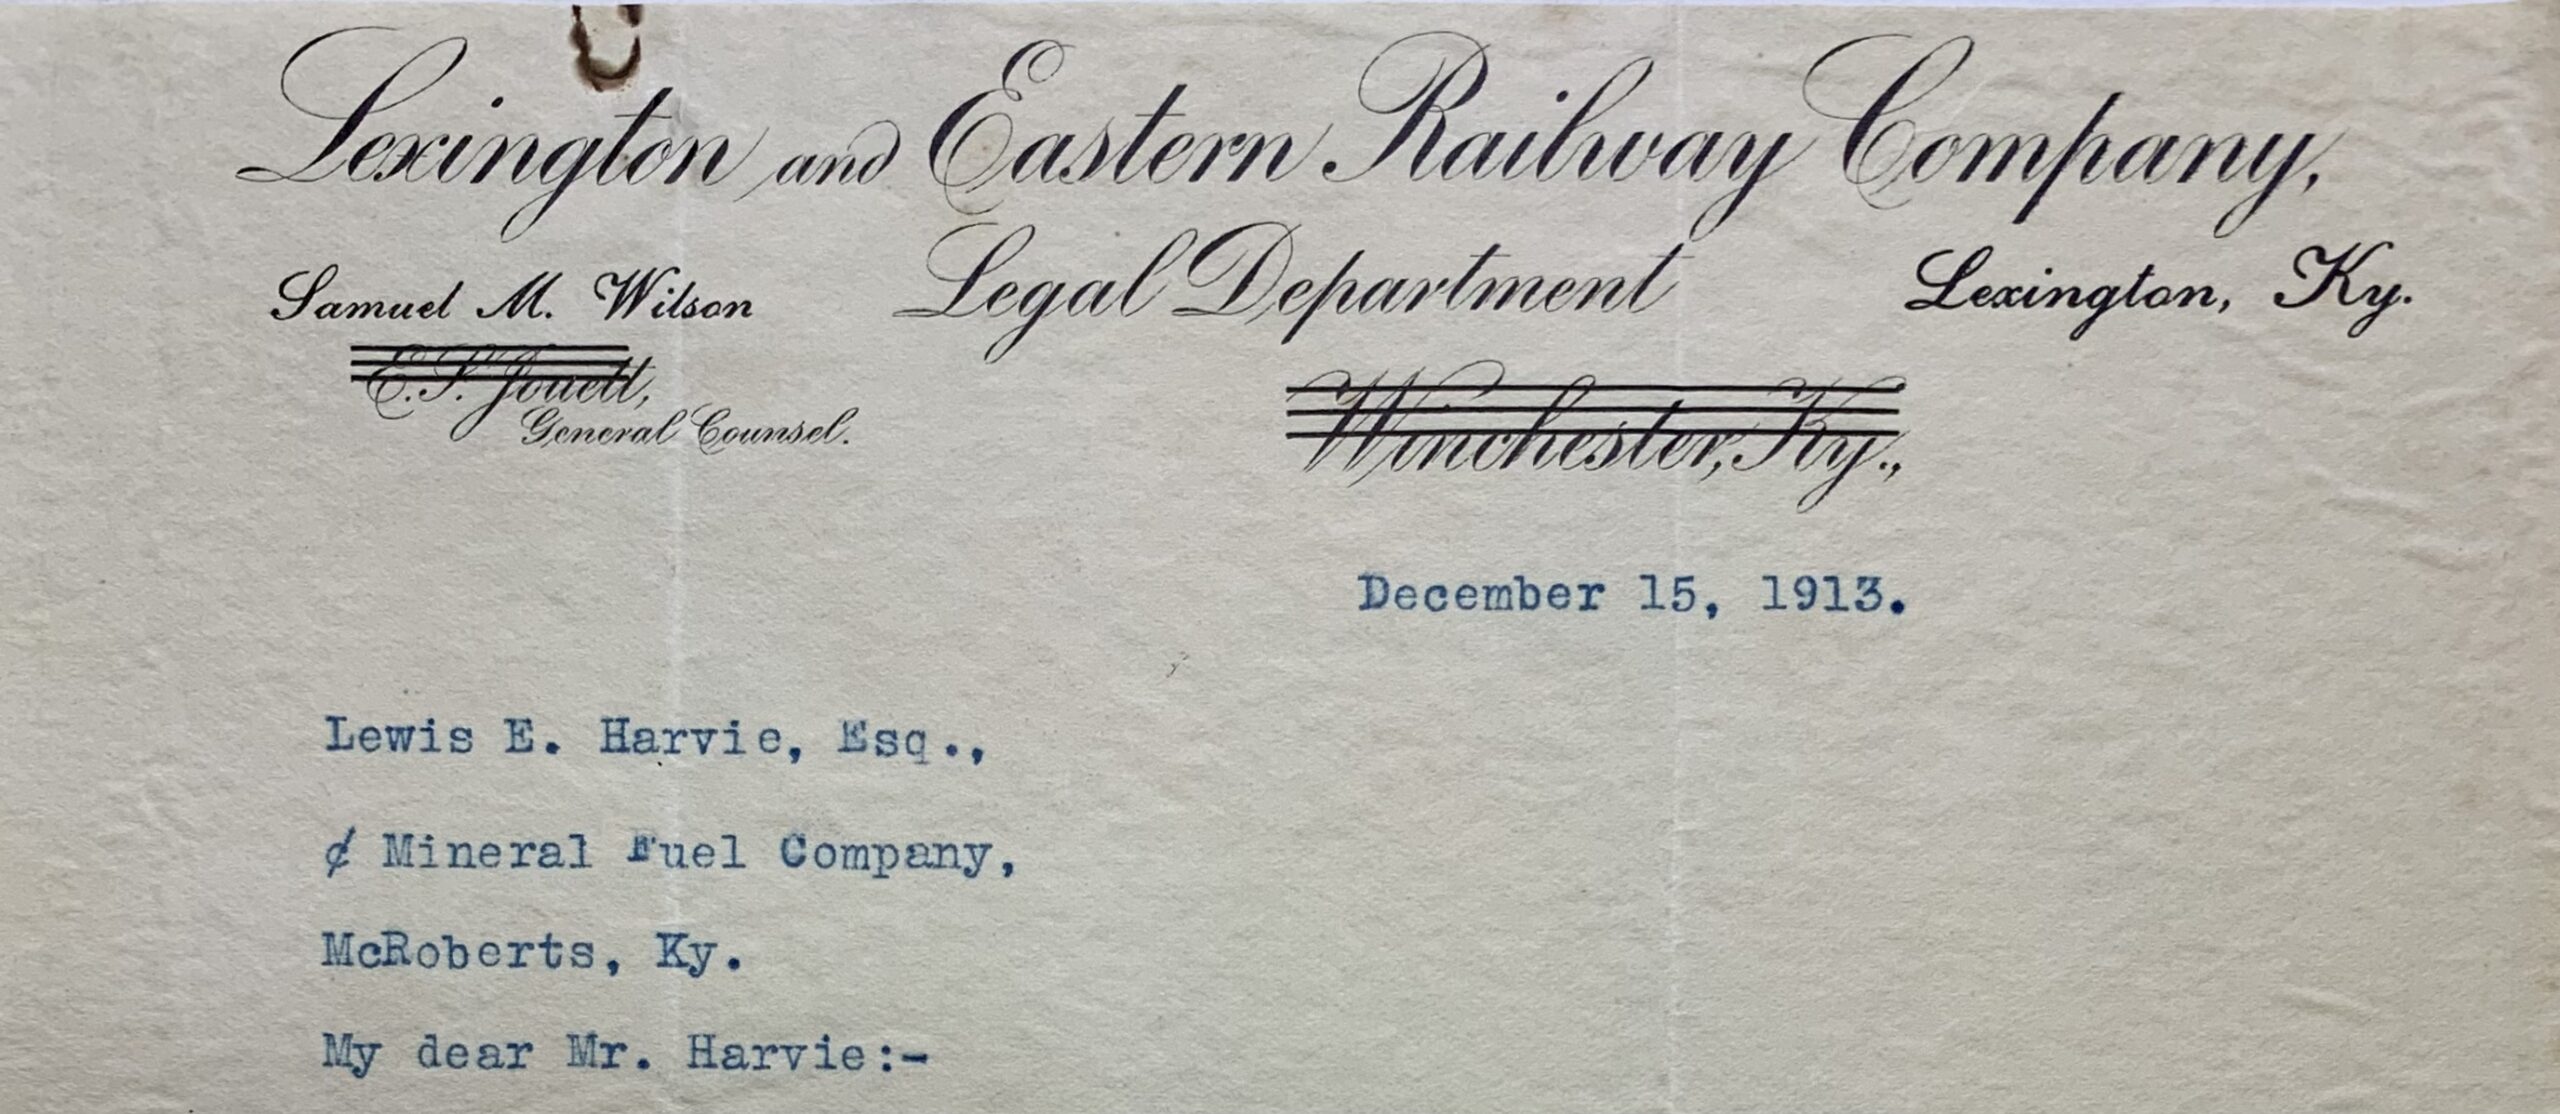 Lexington and Eastern Railway Company,
Legal Department
Samuel M. Wilson
Lexington, Ky.
E.S. Jouett,
General Counsel.
Winchester, Ky.,
December 15, 1913.
Lewis E. Harvie, Esq.,
¢ Mineral Fuel Company,
McRoberts, Ky.
My dear Mr. Harvie:-